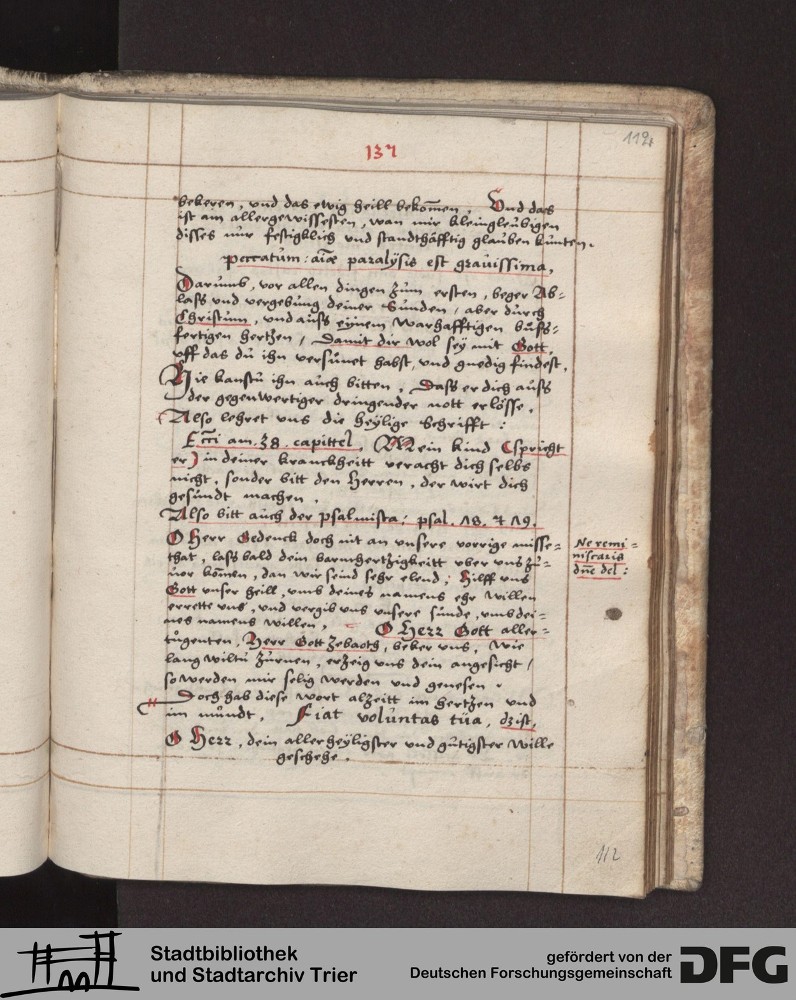 112
137
bekeren, vnd das ewig heill bekom̄en. Vnd das
ist am allergewissesten, wan wir kleingleübigen
disses nür festigklich vnd standthäfftig glauben künten.
Peccatum: aīæ paralÿsis est grauissima,
Darumb, vor allen dingen zům ersten, beger Ab-
lass vnd vergebüng deiner Sunden, aber dürch
Christum, vnd auss eÿnem warhafftigen büss-
fertigen hertzen / Damit dir wol seÿ mit Gott,
vff das dü ihn versünet habst, vnd gnedig findest,
Hie kanstu ihn aüch bitten, Dass er dich aüss
der gegenwertiger dringender nott erlösse,
Also lehret vns die heÿlige Schrifft:
Ecc̄i am. 38. capittel, Mein kind (spricht
er) in deiner kranckheitt veracht dich selbs
nicht, sonder bitt den Herren, der wirt dich
gesündt machen.
Also bitt aüch der Psalmista: psal. 78. et 79.
O Herr Gedenck doch nit an vnsere vorrige misse-
that, lass bald dein barmhertzigkeitt vber vns zü-
uor kom̄en, dan wir seind sehr elend; Hilff vns
Gott vnser heill, vmb deines namens ehr willen
errette vns, vnd vergib vns vnsere sünde, vmb dei-
nes namens willen, O Herr Gott aller-
tügenten, Herr Gott Zebaoth, beker vns, Wie
lang wiltü zürnen, erzeig vns dein angesicht /
so werden wir selig werden vnd genesen.
Doch hab diese wort alzeitt im hertzen vnd
im mündt, Fiat volüntas tüa, dz ist,
O Herr, dein allerheÿligster vnd gütigster Wille
geschehe.
Ne remi-
niscaris
dn̄e del:
112
Stadtbibliothek
und Stadtarchiv Trier
gefördert von der
Deutschen Forschungsgemeinschaft
DFG